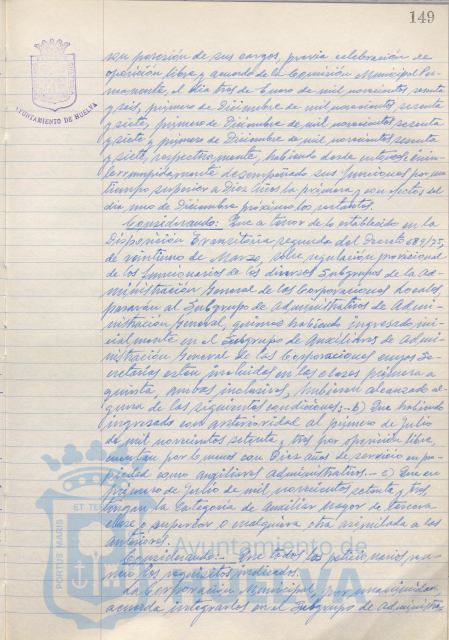 149
AYUNTAMIENTO DE HUELVA
su posesión de sus cargos, previa celebración de
oposición libre y acuerdo de la Comisión Municipal Per-
manente, el día tres de Enero de mil novecientos sesenta
y seis, primero de Diciembre de mil novecientos sesenta
y siete, primero de Diciembre de mil novecientos sesenta
y siete y primero de Diciembre de mil novecientos sesenta
y siete, respectivamente, habiendo desde entonces ininte-
rrumpidamente desempeñado sus funciones por un
tiempo superior a Diez años la primera y con efectos del
día uno de Diciembre próximo los restantes.
Considerando: Que a tenor de lo establecido en la
Disposición Transitoria segunda del Decreto 689/75,
de veintiuno de Marzo, sobre regulación provisional
de los funcionarios de los diversos Subgrupos de la Ad-
ministración General de las Corporaciones Locales,
pasarán al Subgrupo de Administrativos de Admi-
nistración General, quienes habiendo ingresado ini-
cialmente en el Subgrupo de Auxiliares de Admi-
nistración General de las Corporaciones cuyas Se-
cretarías estén incluidas en las clases primera a
quinta, ambas inclusives, hubieran alcanzado al-
guna de las siguientes condiciones: - b) Que habiendo
ingresado con anterioridad al primero de Julio
de mil novecientos setenta y tres por oposición libre,
cuentan por lo menos con Diez años de servicio en pro-
piedad como auxiliares administrativos. - c) Que en
primero de Julio de mil novecientos setenta y tres,
tengan la Categoría de Auxiliar Mayor de Tercera
clase o superior o cualquiera otra asimilada a las
anteriores.
Considerando: - Que todos los peticionarios reu-
nen los requisitos indicados.
La Corporación Municipal, por unanimidad,
acuerda integrarlos en el Subgrupo de Administra-
PORTUS MARIS
ET TE
Ayuntamiento de
HUELVA